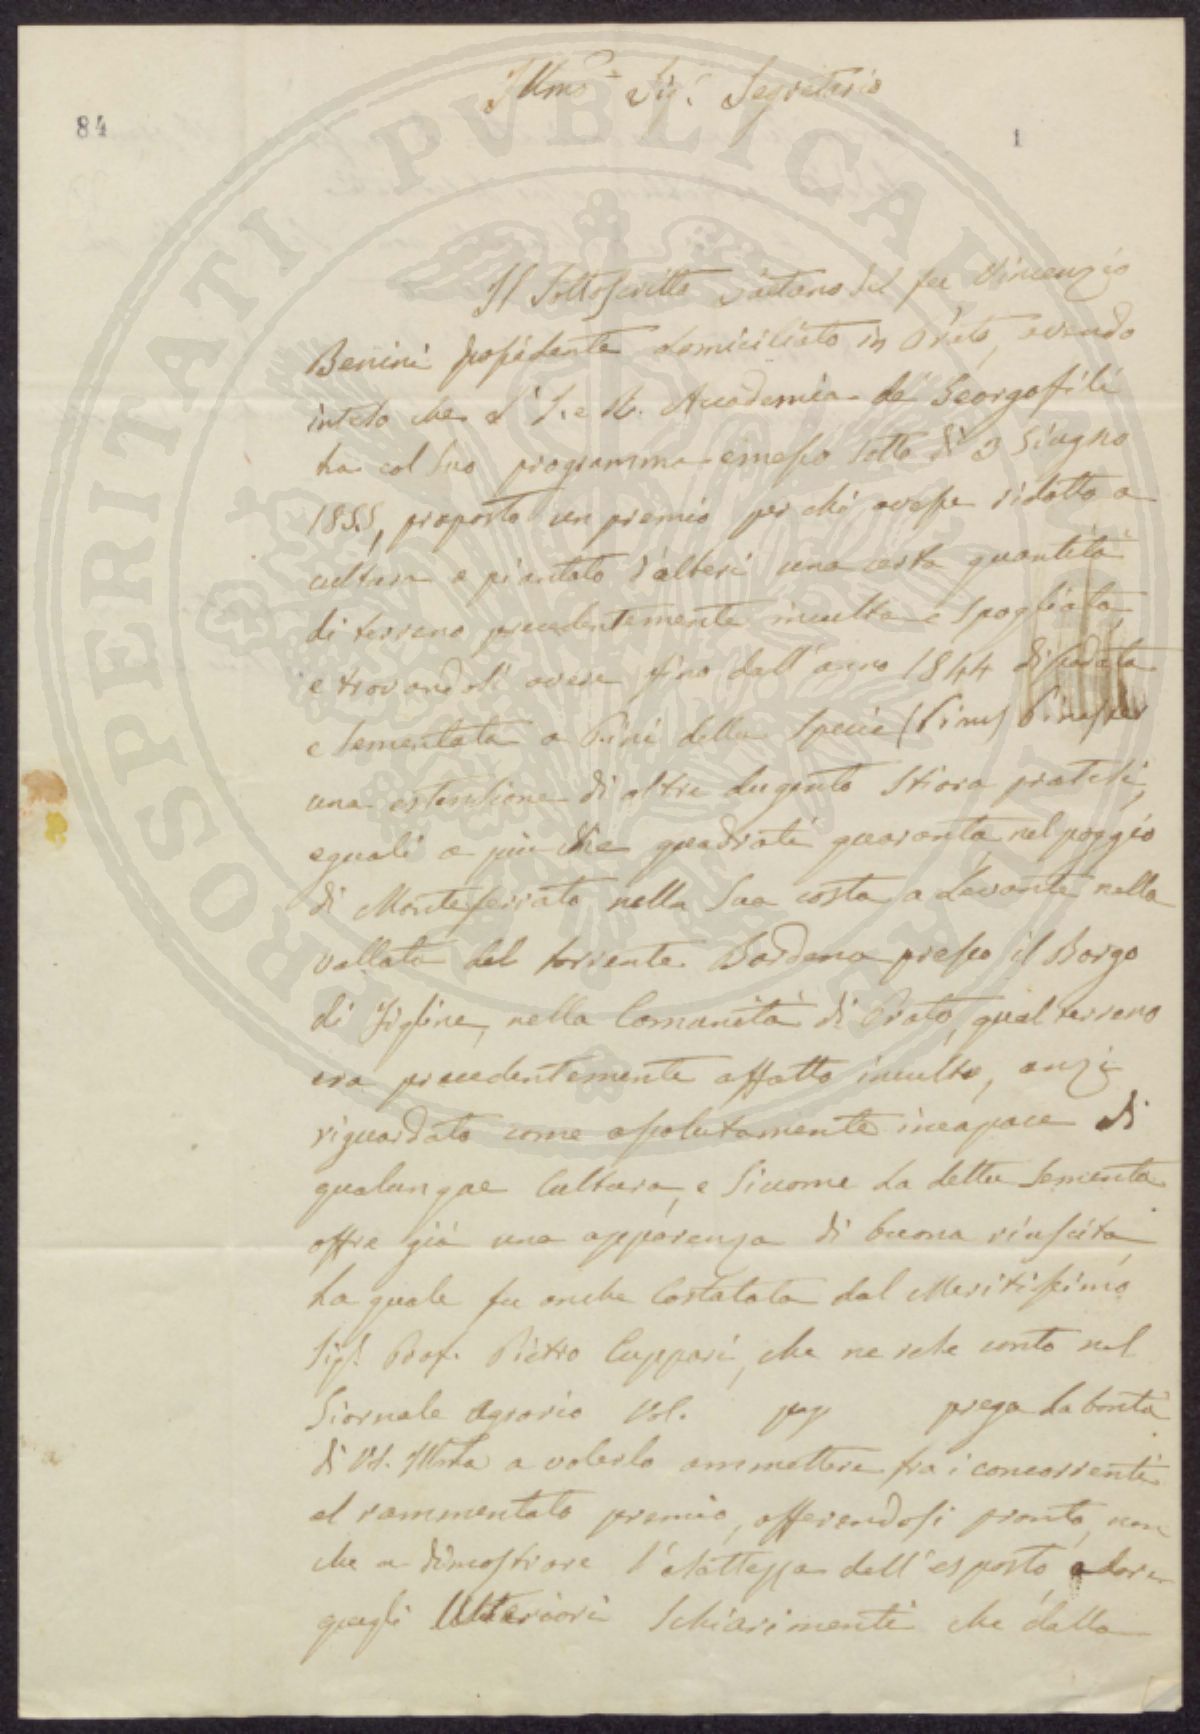 Illmo Sig.r Segretario
84
1
Il Sottoscritto Gaetano del fu Vincenzio
Benini possidente domiciliato in Prato, avendo
inteso che l'I. e R. Accademia de' Georgofili
ha col suo programma emesso sotto dì 3 Giugno
1855, proposto un premio per chi avesse ridotto a
cultura e piantato d'alberi una certa quantità
di terreno precedentemente inculta e spogliata,
e trovandosi avere fino dall'anno 1844
e sementata a Pini della specie (Pinus Pinaster
una estensione di oltre dugento Stiora pratesi,
eguali a più che quadrati quaranta nel poggio
di Monteferrato nella sua costa a Levante nella
vallata del torrente Bardena presso il Borgo
di Figline, nella Comunità di Prato, qual terreno
era precedentemente affatto inculto, anzi
riguardato come assolutamente incapace di
qualunque Cultura, e siccome la detta sementa
offre già una apparenza di buona riuscita,
la quale fu anche Costatata dal Meritissimo
Sig.r Prof. Pietro Cuppari, che ne rese conto nel
Giornale Agrario Vol. pag prega la bontà
di VS. Illma a volerlo ammettere fra i concorrenti
al rammentato premio, offerendosi pronto, non
che a dimostrare l'esattezza dell'esposto, a dare
quegli Ulteriori Schiarimenti che dalla
PROSPERITATI PVBLICAE